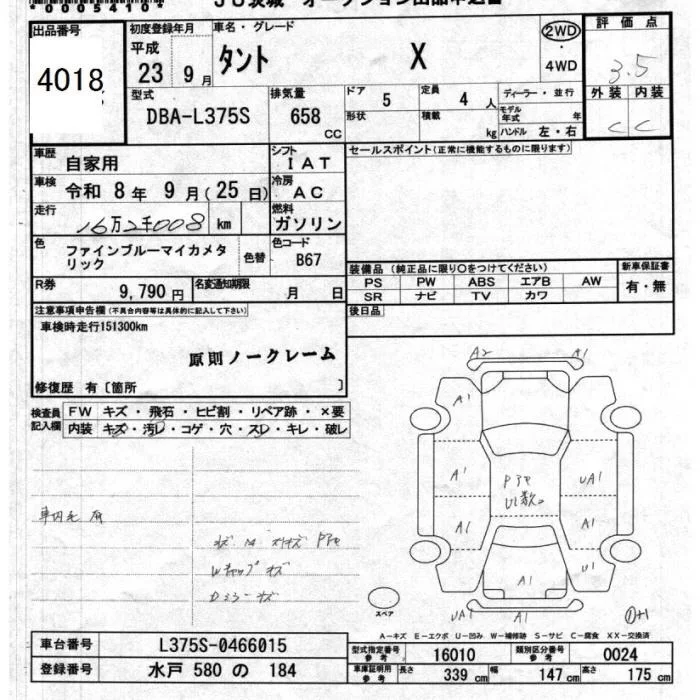 *00054104
JU茨城 オークション出品申込書
出品番号
4018
初度登録年月
平成
23 9月
車名・グレード
タント X
2WD
4WD
評価点
3.5
外装 内装
C C
型式
DBA-L375S
排気量
658
CC
ドア
5
形状
定員
4 人
積載
kg
ディーラー・並行
モデル年式 年
ハンドル 左・右
車歴
自家用
シフト
IAT
車検
令和 8年 9月(25日)
冷房
AC
走行
16万2千008 km
燃料
ガソリン
色
ファインブルーマイカメタリック
色替
色コード
B67
R券
9,790円
名変通知期限
月 日
セールスポイント(正常に機能するものに限ります)
装備品(純正品に限り○をつけてください)
PS PW ABS エアB AW
SR ナビ TV カワ
新車保証書
有・無
後日品
注意事項申告欄(不具合内容等は具体的に記入して下さい)
車検時走行151300km
原則ノークレーム
修復歴 有〔箇所 〕
検査員記入欄
FW キズ・飛石・ヒビ割・リペア跡・×要
内装 キズ・汚レ・コゲ・穴・スレ・キレ・破レ
A2 A1
A1
A1
UA1
A1
A1
U1
A1
UA1 A1
スペア
A-キズ E-エクボ U-凹み W-補修跡 S-サビ C-腐食 XX-交換済
車台番号
L375S-0466015
登録番号
水戸 580 の 184
型式指定番号
参考
16010
類別区分番号
参考
0024
車庫証明用
参考
長さ
339 cm
幅
147 cm
高さ
175 cm